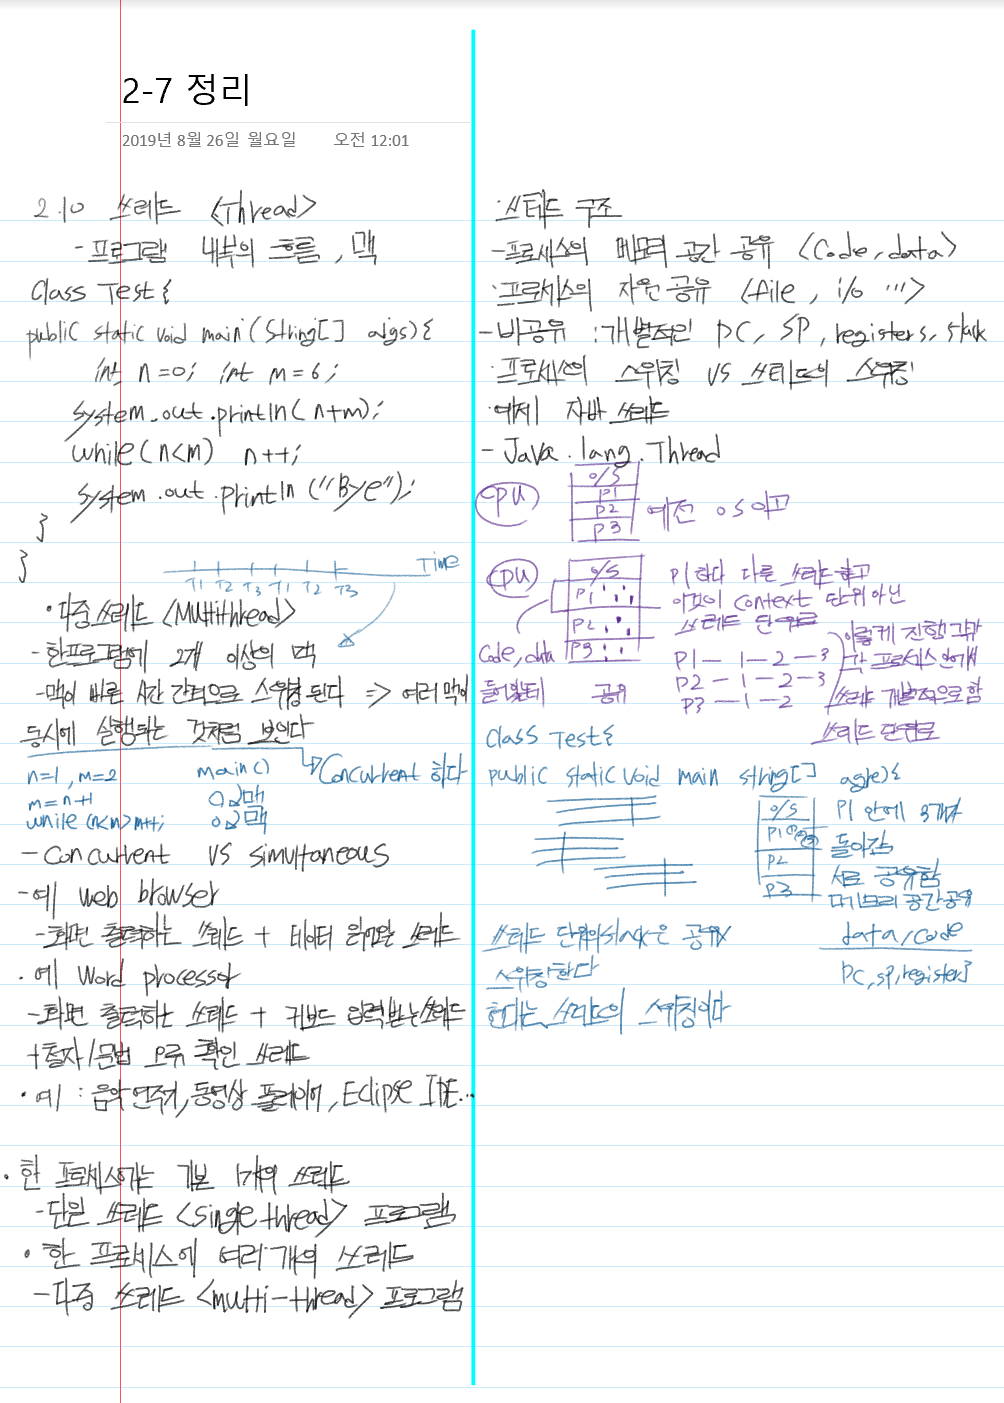 2-7 정리
2019년 8월 26일 월요일 오전 12:01
2.10 쓰레드 <Thread>
- 프로그램 내부의 흐름, 맥
Class Test {
public static void main (String[] args) {
int n=0; int m=6;
System.out.println(n+m);
while(n<m) n++;
System.out.println("Bye");
}
}
Time
T1 T2 T3 T1 T2 T3
· 다중 쓰레드 <Multithread>
- 한프로그램에 2개 이상의 맥
- 맥이 빠른 시간 간격으로 스위칭 된다 => 여러 맥이
동시에 실행되는 것처럼 보인다
Concurrent 하다
n=1, m=2 main()
m=n+1 맥
while (n<m) n++; 맥
- Concurrent VS simultaneous
- 예 web browser
- 화면 출력하는 쓰레드 + 데이터 읽어오는 쓰레드
· 예 Word processor
- 화면 출력하는 쓰레드 + 키보드 입력받는 쓰레드
+ 철자/문법 오류 확인 쓰레드
· 예 : 음악 연주기, 동영상 플레이어, Eclipse IDE...
· 한 프로세스에는 기본 1개의 쓰레드
- 단일 쓰레드 <single thread> 프로그램
· 한 프로세스에 여러 개의 쓰레드
- 다중 쓰레드 <multi-thread> 프로그램
· 쓰레드 구조
- 프로세스의 메모리 공간 공유 <Code, data>
· 프로세스의 자원 공유 <file, i/o ...>
- 비공유 : 개별적인 PC, SP, registers, stack
· 프로세스의 스위칭 VS 쓰레드의 스위칭
· 예제 자바 쓰레드
- Java.lang.Thread
CPU
O/S
P1
P2
P3
예전 OS이고
CPU
O/S
P1
P2
P3
P1하다 다른 쓰레드 하고
이것이 context 단위 아닌
쓰레드 단위로
Code, data
들어있 공유
P1 - 1 - 2 - 3
P2 - 1 - 2 - 3
P3 - 1 - 2
이렇게 진행
각 프로세스 안에서
함
쓰레드 단위로
Class Test {
public static void main string[] agre) {
O/S
P1
P2
P3
P1 안에 3개가
돌아감
서로 공유함
메모리 공간 공유
쓰레드 단위의 stack은 공유X
스위칭한다
현대는 쓰레드의 스위칭이다
data/code
PC, SP, register